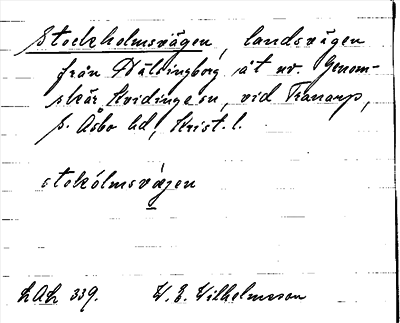 Stockholmsvägen, landsvägen
från Hälsingborg åt nv. Genom-
skär Kvidinge sn, vid Tranarp,
S. Åsbo hd, Krist. l.
stokólmsvägen
LAL 339. W. E. Vilhelmsson